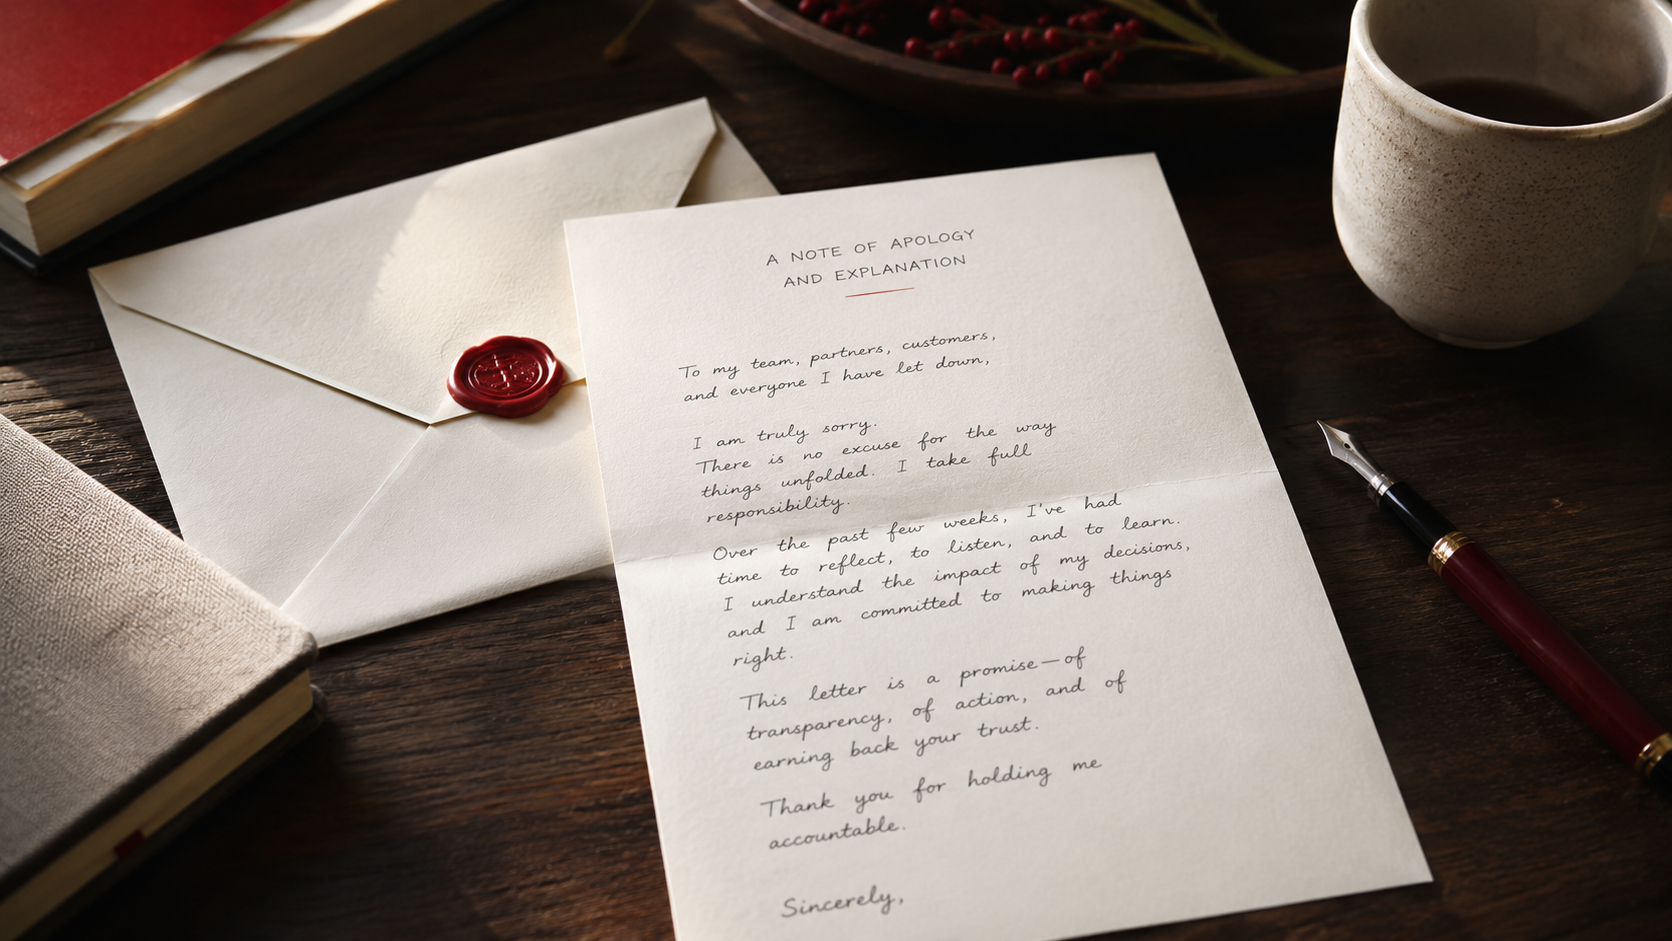 A NOTE OF APOLOGY
AND EXPLANATION
To my team, partners, customers,
and everyone I have let down,
I am truly sorry.
There is no excuse for the way
things unfolded. I take full
responsibility.
Over the past few weeks, I've had
time to reflect, to listen, and to learn.
I understand the impact of my decisions,
and I am committed to making things
right.
This letter is a promise—of
transparency, of action, and of
earning back your trust.
Thank you for holding me
accountable.
Sincerely,